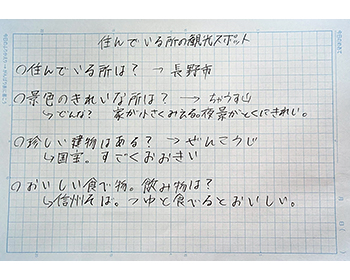 住んでいる所の観光スポット
○住んでいる所は？→長野市
○景色のきれいな所は？→ちゃうす山
↳どんな？ 家が小さくみえる。夜景がとくにきれい。
○珍しい建物はある？→ぜんこうじ
↳国宝。すごくおおきい
○おいしい食べ物。飲み物は？
↳信州そば。つゆと食べるとおいしい。